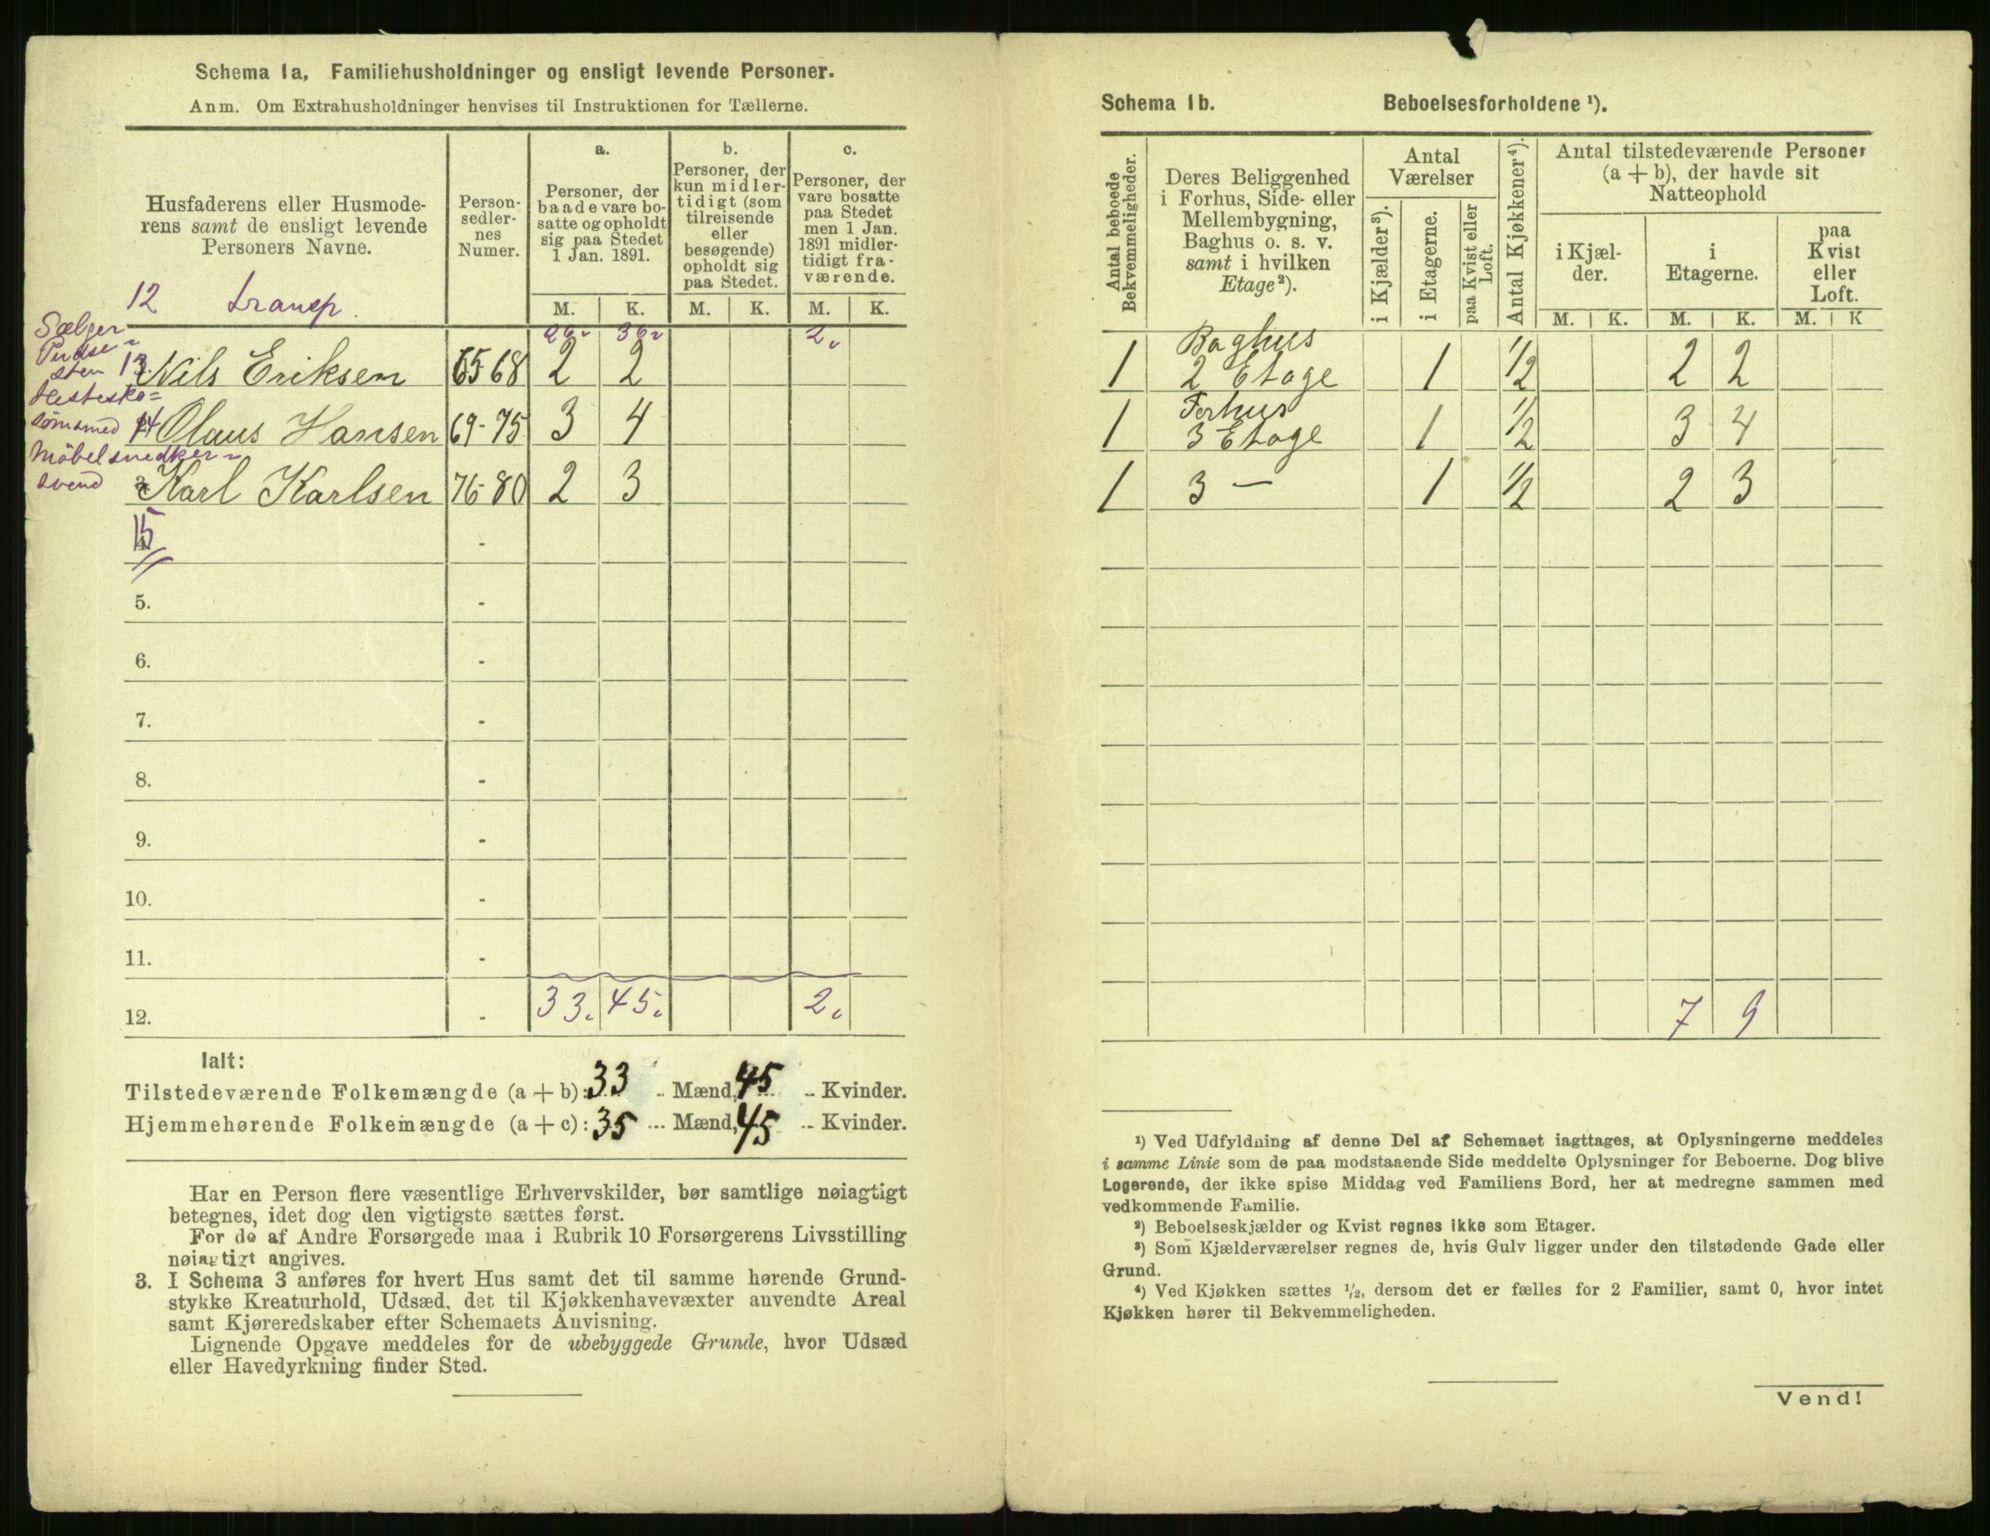 Schema 1a. Familiehusholdninger og ensligt levende Personer.
Anm. Om Extrahusholdninger henvises til Instruktionen for Tællerne.
Husfaderens eller Husmode-
rens samt de ensligt levende
Personers Navne.
Person-
sedler-
nes
Numer.
a.
Personer, der
baade vare bo-
satte og opholdt
sig paa Stedet
1 Jan. 1891.
b.
Personer, der
kun midler-
tidigt (som
tilreisende
eller
besøgende)
opholdt sig
paa Stedet.
c.
Personer, der
vare bosatte
paa Stedet
men 1 Jan.
1891 midler-
tidigt fra-
værende.
M. K. M. K. M. K.
12 transp.
26. 36. 2.
Sælger
sten 13. Nils Eriksen 65-68 2 2
Hestesko=
sømsmed 14 Olaus Hansen 69-75 3 4
Möbelsnedker=
svend 3. Karl Karlsen 76-80 2 3
15
4. -
5. -
6. -
7. -
8. -
9. -
10. -
11. -
12. - 33. 45. 2.
Ialt:
Tilstedeværende Folkemængde (a + b): 33 Mænd, 45 Kvinder.
Hjemmehørende Folkemængde (a + c): 35 Mænd, 45 Kvinder.
Har en Person flere væsentlige Erhvervskilder, bør samtlige nøiagtigt
betegnes, idet dog den vigtigste sættes først.
For de af Andre Forsørgede maa i Rubrik 10 Forsørgerens Livsstilling
nøiagtigt angives.
3. I Schema 3 anføres for hvert Hus samt det til samme hørende Grund-
stykke Kreaturhold, Udsæd, det til Kjøkkenhavevæxter anvendte Areal
samt Kjøreredskaber efter Schemaets Anvisning.
Lignende Opgave meddeles for de ubebyggede Grunde, hvor Udsæd
eller Havedyrkning finder Sted.
Schema 1b. Beboelsesforholdene ¹).
Antal beboede
Bekvemmeligheder.
Deres Beliggenhed
i Forhus, Side- eller
Mellembygning,
Baghus o. s. v.
samt i hvilken
Etage²).
Antal
Værelser
i Kjælder³).
i Etagerne.
paa Kvist eller
Loft.
Antal Kjøkkener⁴).
Antal tilstedeværende Personer
(a + b), der havde sit
Natteophold
i Kjæl-
der.
i
Etagerne.
paa
Kvist
eller
Loft.
M. K. M. K. M. K
Baghus
1 2 Etage 1 1/2 2 2
Forhus
1 3 Etage 1 1/2 3 4
1 3 — 1 1/2 2 3
7 9
¹) Ved Udfyldning af denne Del af Schemaet iagttages, at Oplysningerne meddeles
i samme Linie som de paa modstaaende Side meddelte Oplysninger for Beboerne. Dog blive
Logerende, der ikke spise Middag ved Familiens Bord, her at medregne sammen med
vedkommende Familie.
²) Beboelseskjælder og Kvist regnes ikke som Etager.
³) Som Kjælderværelser regnes de, hvis Gulv ligger under den tilstødende Gade eller
Grund.
⁴) Ved Kjøkken sættes ½, dersom det er fælles for 2 Familier, samt 0, hvor intet
Kjøkken hører til Bekvemmeligheden.
Vend!